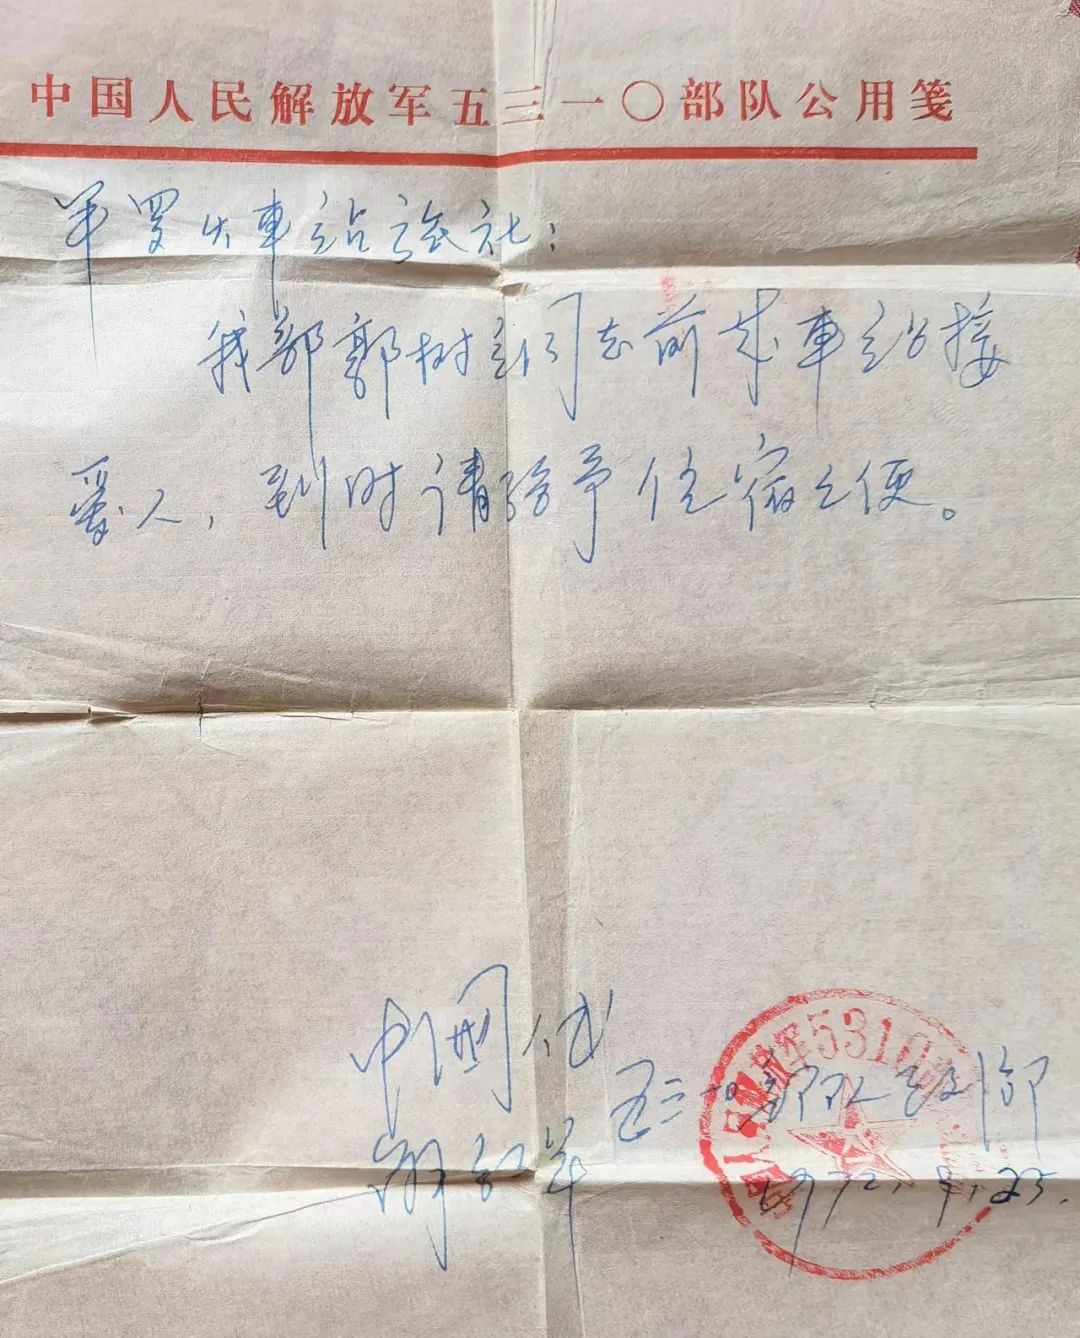 中国人民解放军五三一〇部队公用笺
平罗火车站旅社：
我部郭树同志前来车站接
爱人，到时请给予住宿之便。
中国
解放军
五三一〇部队部
1972.
解放军5310